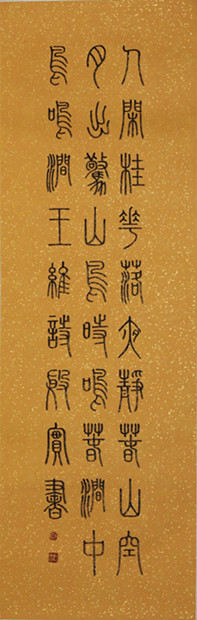 人閑桂花落夜靜春山空
月出驚山鳥時鳴春澗中
鳥鳴澗王維詩殷實書